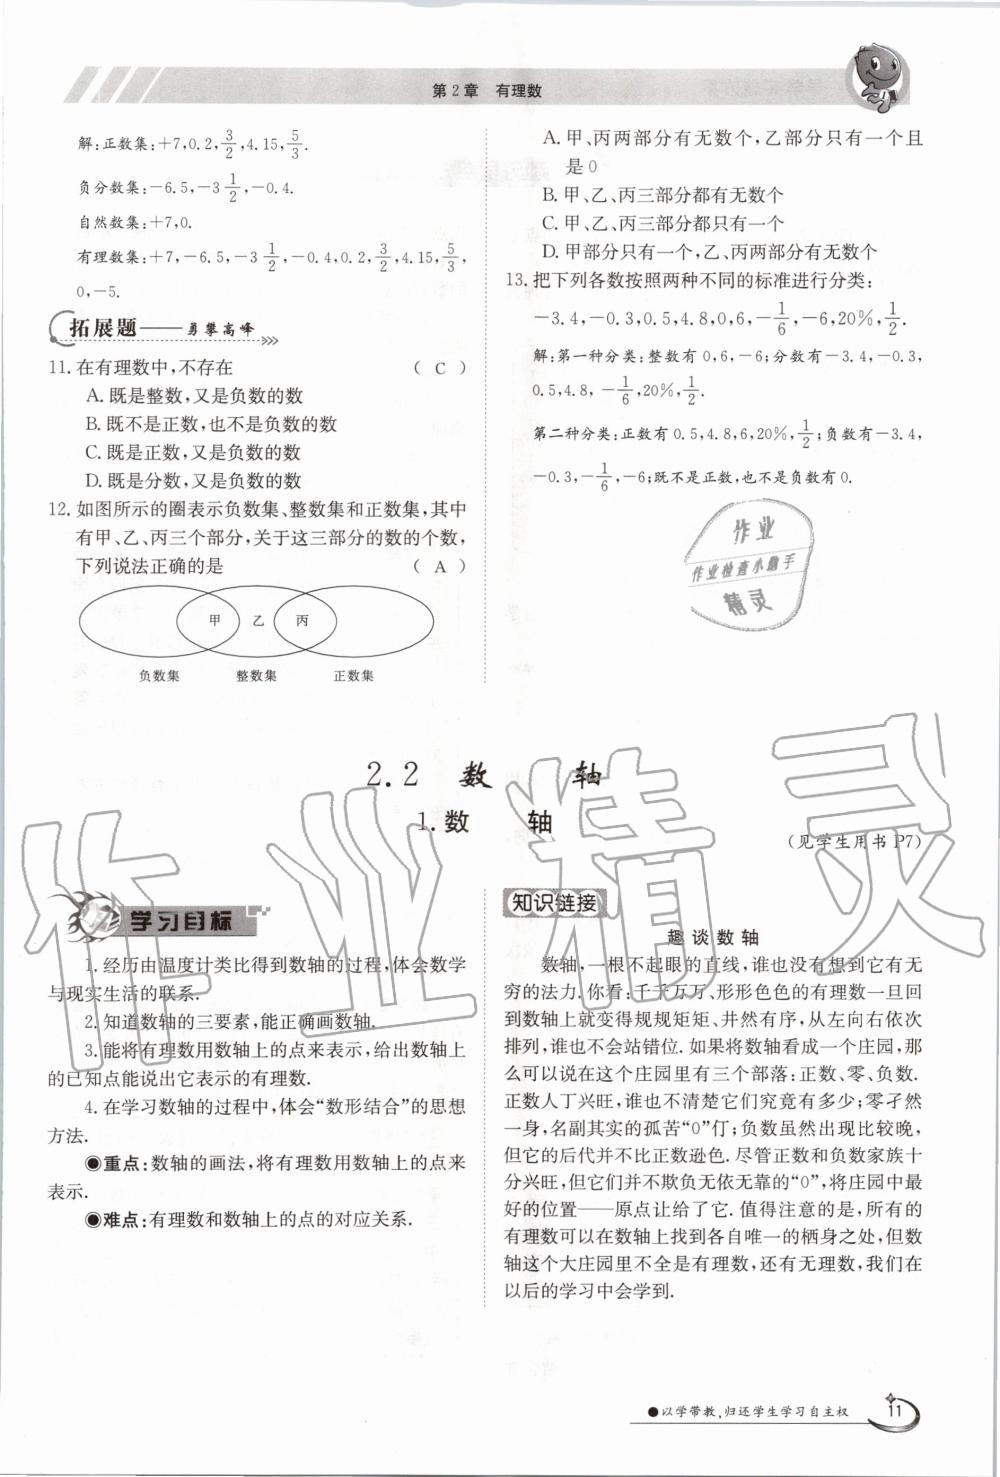 第2章 有理数
解:正数集:+7,0.2,3/2,4.15,5/3.
负分数集:-6.5,-3 1/2,-0.4.
自然数集:+7,0.
有理数集:+7,-6.5,-3 1/2,-0.4,0.2,3/2,4.15,5/3,
0,-5.
拓展题——勇攀高峰
11. 在有理数中,不存在 ( C )
A. 既是整数,又是负数的数
B. 既不是正数,也不是负数的数
C. 既是正数,又是负数的数
D. 既是分数,又是负数的数
12. 如图所示的圈表示负数集、整数集和正数集,其中
有甲、乙、丙三个部分,关于这三部分的数的个数,
下列说法正确的是 ( A )
甲 乙 丙
负数集 整数集 正数集
A. 甲、丙两部分有无数个,乙部分只有一个且
是0
B. 甲、乙、丙三部分都有无数个
C. 甲、乙、丙三部分都只有一个
D. 甲部分只有一个,乙、丙两部分有无数个
13. 把下列各数按照两种不同的标准进行分类:
-3.4,-0.3,0.5,4.8,0,6,-1/6,-6,20%,1/2.
解:第一种分类:整数有0,6,-6;分数有-3.4,-0.3,
0.5,4.8,-1/6,20%,1/2.
第二种分类:正数有0.5,4.8,6,20%,1/2;负数有-3.4,
-0.3,-1/6,-6;既不是正数,也不是负数有0.
作业
作业检查小助手
精灵
2.2 数 轴
1. 数 轴
(见学生用书P7)
作业精灵
学习目标
1. 经历由温度计类比得到数轴的过程,体会数学
与现实生活的联系.
2. 知道数轴的三要素,能正确画数轴.
3. 能将有理数用数轴上的点来表示,给出数轴上
的已知点能说出它表示的有理数.
4. 在学习数轴的过程中,体会“数形结合”的思想
方法.
◉重点:数轴的画法,将有理数用数轴上的点来
表示.
◉难点:有理数和数轴上的点的对应关系.
知识链接
趣谈数轴
数轴,一根不起眼的直线,谁也没有想到它有无
穷的法力. 你看:千千万万、形形色色的有理数一旦回
到数轴上就变得规规矩矩、井然有序,从左向右依次
排列,谁也不会站错位. 如果将数轴看成一个庄园,那
么可以说在这个庄园里有三个部落:正数、零、负数.
正数人丁兴旺,谁也不清楚它们究竟有多少;零孑然
一身,名副其实的孤苦“0”仃;负数虽然出现比较晚,
但它的后代并不比正数逊色. 尽管正数和负数家族十
分兴旺,但它们并不欺负无依无靠的“0”,将庄园中最
好的位置——原点让给了它. 值得注意的是,所有的
有理数可以在数轴上找到各自唯一的栖身之处,但数
轴这个大庄园里不全是有理数,还有无理数,我们在
以后的学习中会学到.
●以学带教,归还学生学习自主权
11